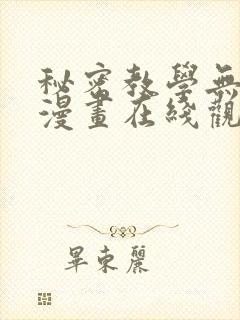 秘密教學無
漫畫在綫觀
畢東麗